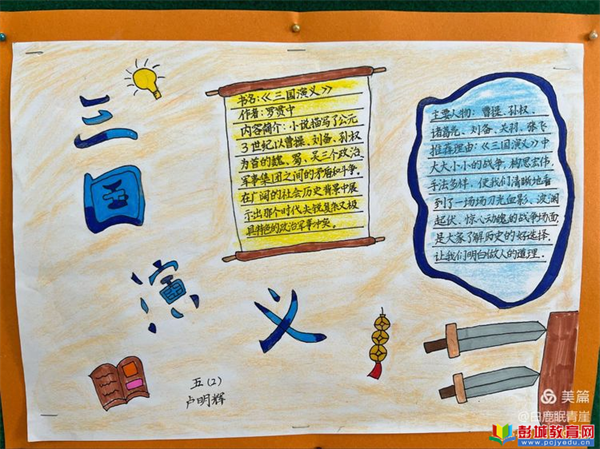 三
国
演
义
书名:《三国演义》
作者:罗贯中
内容简介:小说描写了公元
3世纪以曹操、刘备、孙权
为首的魏、蜀、吴三个政治
军事集团之间的矛盾和斗争。
在广阔的社会历史背景中展
示出那个时代尖锐复杂又极
具特色的政治军事冲突。
主要人物:曹操、孙权、
诸葛亮、刘备、关羽、张飞
推荐理由:《三国演义》中
大大小小的战争,构思宏伟,
手法多样,使我们清晰地看
到了一场场刀光血影、波澜
起伏、惊人动魄的战争场面,
是大家了解历史的好选择.
让我们明白做人的道理.
五(2)
卢明辉
美篇
@白鹿眠青崖
彭城教育网
www.pcjyedu.cn